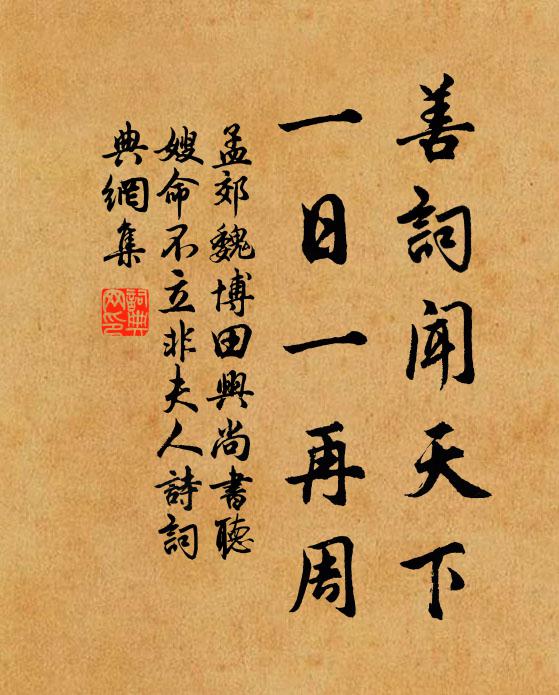 善詞聞天下
一日一再周
孟郊魏博田興尚書聽
嫂命不立非夫人詩詞
典網集
詞典網印